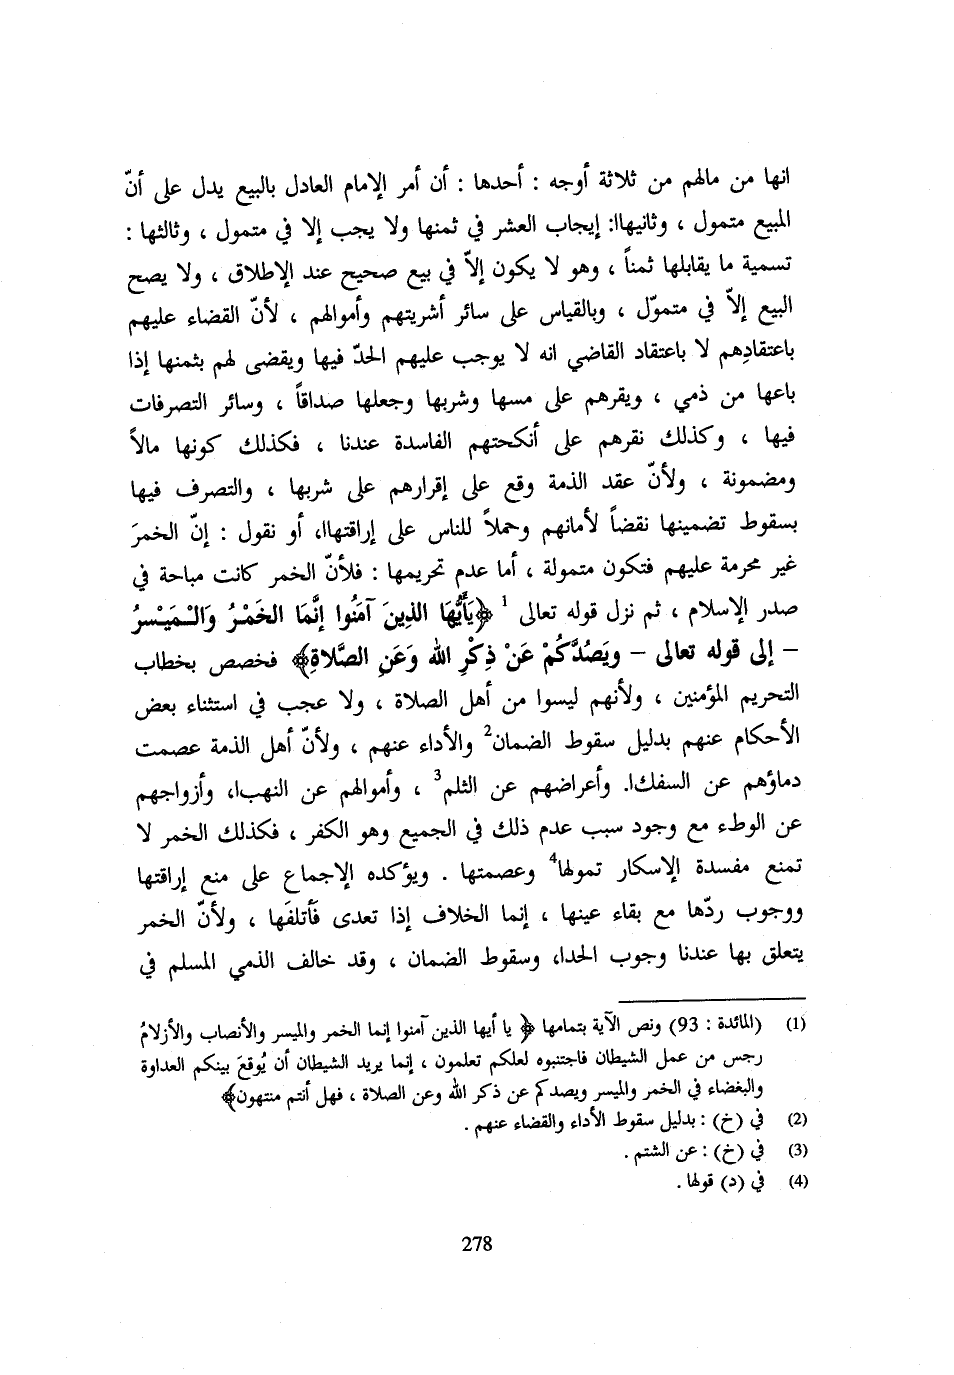 انها من مالهم من ثلاثة أوجه : أحدها : أن أمر الإمام العادل بالبيع يدل على أنّ
المبيع متمول ، وثانيهاا: إيجاب العشر في ثمنها ولا يجب إلا في متمول ، وثالثها :
تسمية ما يقابلها ثمناً ، وهو لا يكون إلاّ في بيع صحيح عند الإطلاق ، ولا يصح
البيع إلاّ في متموّل ، وبالقياس على سائر أشربتهم وأموالهم ، لأنّ القضاء عليهم
باعتقادِهم لا باعتقاد القاضي انه لا يوجب عليهم الحدّ فيها ويقضى لهم بثمنها إذا
باعها من ذمي ، ويقرهم على مسها وشربها وجعلها صداقاً ، وسائر التصرفات
فيها ، وكذلك نقرهم على أنكحتهم الفاسدة عندنا ، فكذلك كونها مالاً
ومضمونة ، ولأنّ عقد الذمة وقع على إقرارهم على شربها ، والتصرف فيها
بسقوط تضمينها نقضاً لأمانهم وحملاً للناس على إراقتهاا، أو نقول : إنّ الخمرَ
غير محرمة عليهم فتكون متمولة ، أما عدم تحريمها : فلأنّ الخمر كانت مباحة في
صدر الإسلام ، ثم نزل قوله تعالى 1 ﴿يَأَيُّهَا الذِينَ آمَنُوا إنَّمَا الخَمْرُ وَالْـمَيْسرُ
– إلى قوله تعالى – ويَصُدَّكُمْ عَنْ ذِكْرِ الله وَعَنِ الصَّلاةِ﴾ فخصص بخطاب
التحريم المؤمنين ، ولأنهم ليسوا من أهل الصلاة ، ولا عجب في استثناء بعض
الأحكام عنهم بدليل سقوط الضمان2 والأداء عنهم ، ولأنّ أهل الذمة عصمت
دماؤهم عن السفكا. وأعراضهم عن الثلم3 ، وأموالهم عن النهبا، وأزواجهم
عن الوطء مع وجود سبب عدم ذلك في الجميع وهو الكفر ، فكذلك الخمر لا
تمنع مفسدة الإسكار تمولها4 وعصمتها . ويؤكده الإجماع على منع إراقتها
ووجوب ردّها مع بقاء عينها ، إنما الخلاف إذا تعدى فَأتلفَها ، ولأنّ الخمر
يتعلق بها عندنا وجوب الحدا، وسقوط الضمان ، وقد خالف الذمي المسلم في
(1) (المائدة : 93) ونص الآية بتمامها ﴿ يا أيها الذين آمنوا إنما الخمر والميسر والأنصاب والأزلامُ
رجس من عمل الشيطان فاجتنبوه لعلكم تعلمون ، إنما يريد الشيطان أن يُوقعَ بينكم العداوة
والبغضاء في الخمر والميسر ويصدكم عن ذكر الله وعن الصلاة ، فهل أنتم منتهون﴾
(2) في (خ) : بدليل سقوط الأداء والقضاء عنهم .
(3) في (خ) : عن الشتم .
(4) في (د) قولها .
278